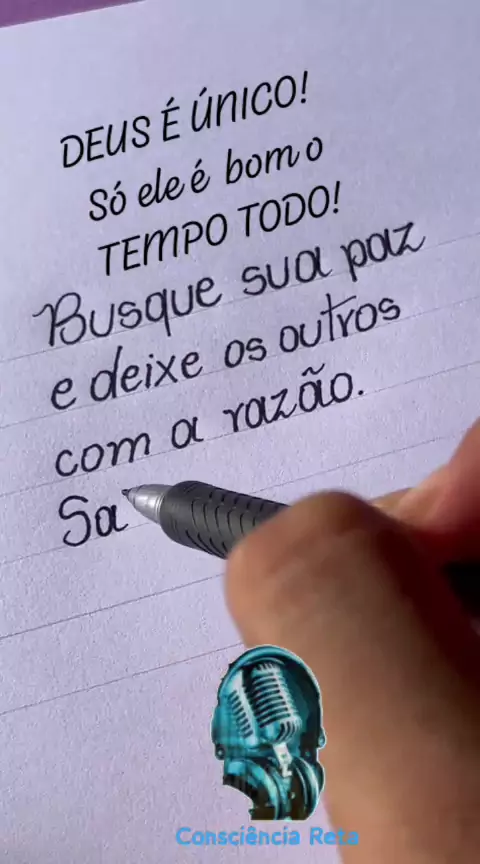 DEUS É ÚNICO!
Só ele é bom o
TEMPO TODO!
Busque sua paz
e deixe os outros
com a razão.
Sa
Consciência Reta